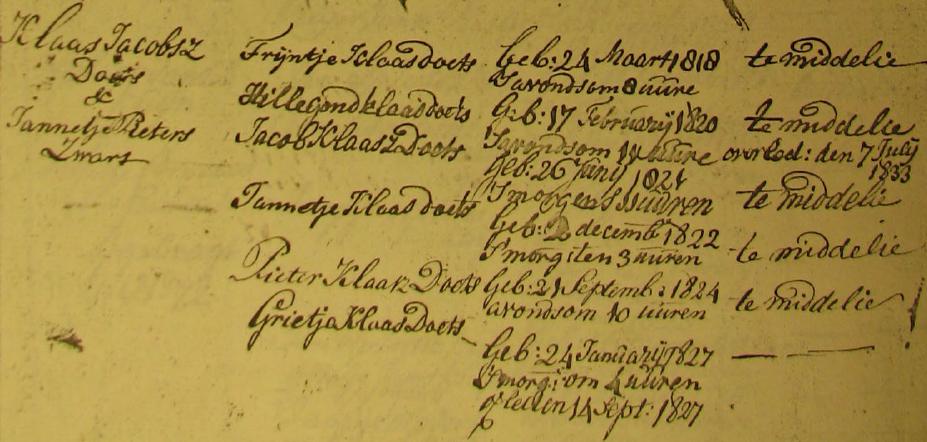 Klaas Jacobsz
Doets
&
Jannetje Pieters
Zwart
Frijntje Klaas Doets Geb: 24 Maart 1818 te middelie
S'avonds om 8 uure
Hillegond klaas doets Geb: 17 Februarij 1820 te middelie
S'avonds om 11 uure overled: den 7 July
1833
Jacob Klaasz Doets geb: 26 Junij 1821
S'morgens uuren te middelie
Jannetje Klaas doets Geb: 2 decemb 1822
S'morg: ten 3 uuren te middelie
Pieter Klaasz Doets Geb: 21 Septemb: 1824
avonds om 10 uuren te middelie
Grietja Klaas Doets
Geb: 24 Januarij 1827
S'morg: om 4 uuren
14 Sept: 1827